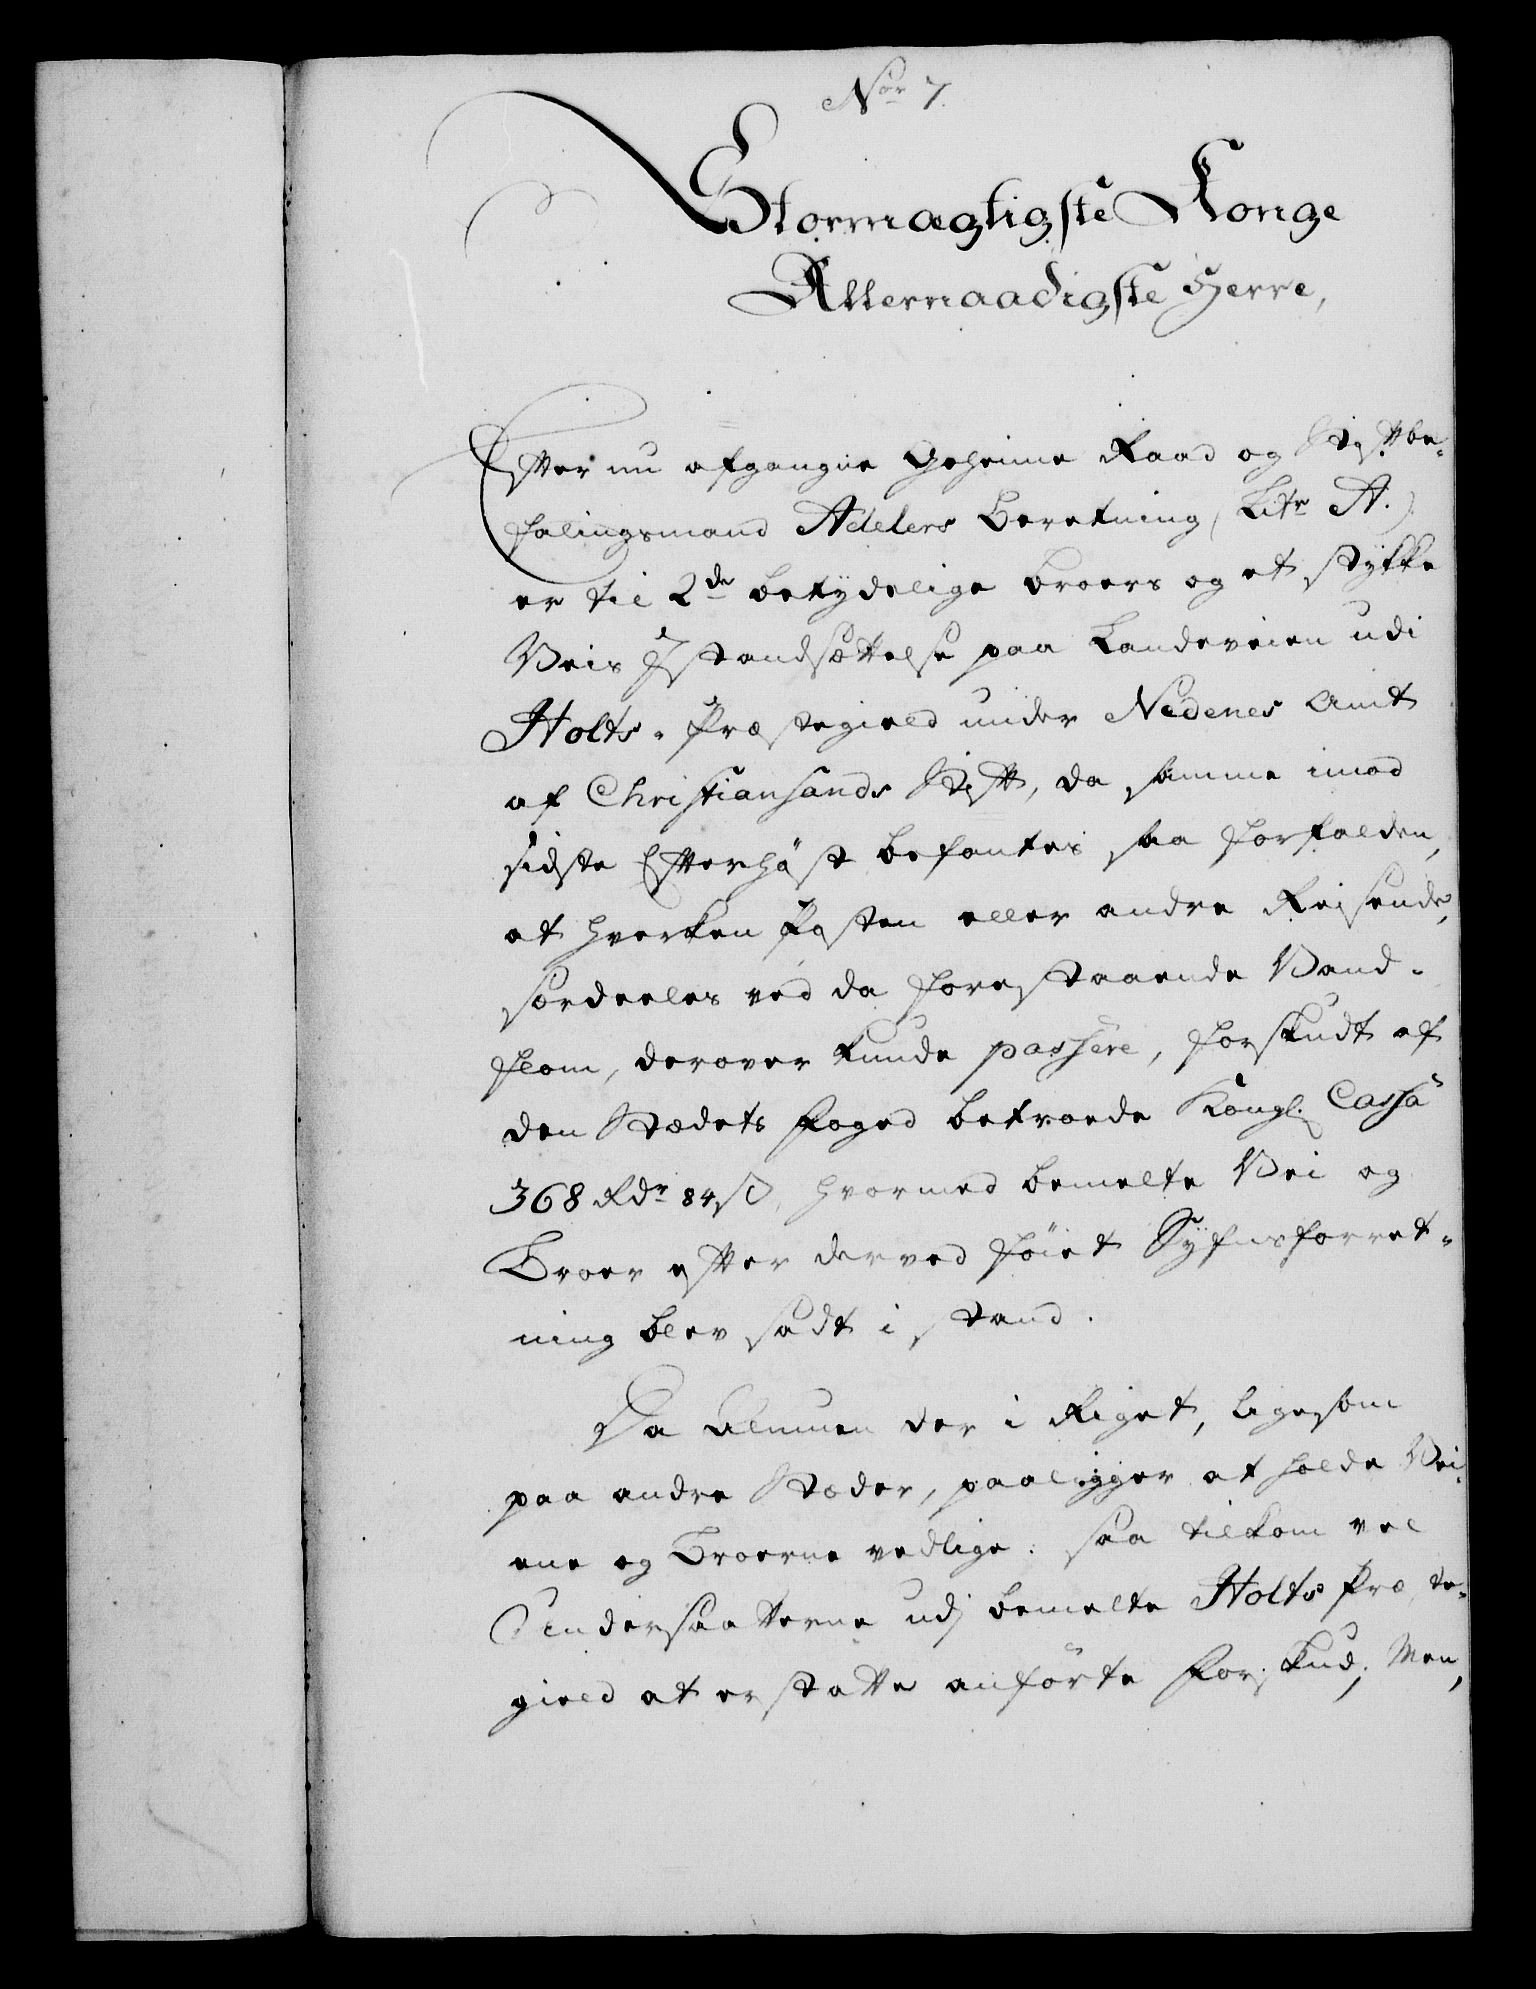 Nor 7.
Stormægtigste Konge
Allernaadigste Herre,
Efter nu afgangne Geheime Raad og Stiftbe-
falingsmand Adelers Beretning (Litr A.)
er til 2de betydelige Broers og et stykke
Veis Istandsættelse paa Landeveien udi
Holts-Præstegield under Nedenes Amt
af Christiansands Stift, da samme imod
sidste Efterhøst befantes saa forfalden,
at hverken Posten eller andre Reisende,
særdeeles ved da forestaaende Vand-
flom, derover kunde passere, forskudt af
den Stædets Foged betroede Kongl. Cassa
368 Rdr 84 ß, hvormed bemelte Vei og
Broer efter derved føiet Syfnsforret-
ning blev sadt i stand.
Da Almuen der i Riget, ligesom
paa andre Stæder, paaligger at holde Vei-
ene og Broerne vedlige: saa tilkom vel
Undersaatterne udj bemelte Holts Præste-
gield at erstatte anførte Forskud; Men,